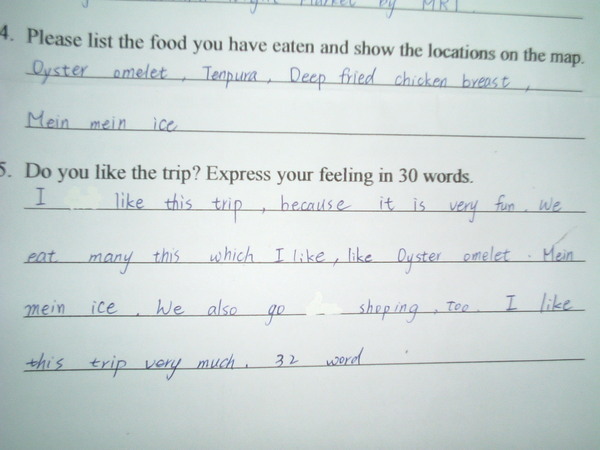 Market by MRT.
4. Please list the food you have eaten and show the locations on the map.
Oyster omelet, Tenpura, Deep fried chicken breast,
Mein mein ice
5. Do you like the trip? Express your feeling in 30 words.
I like this trip, because it is very fun. We
eat many this which I like, like Oyster omelet. Mein
mein ice. We also go shoping, Too. I like
this trip very much. 32 word